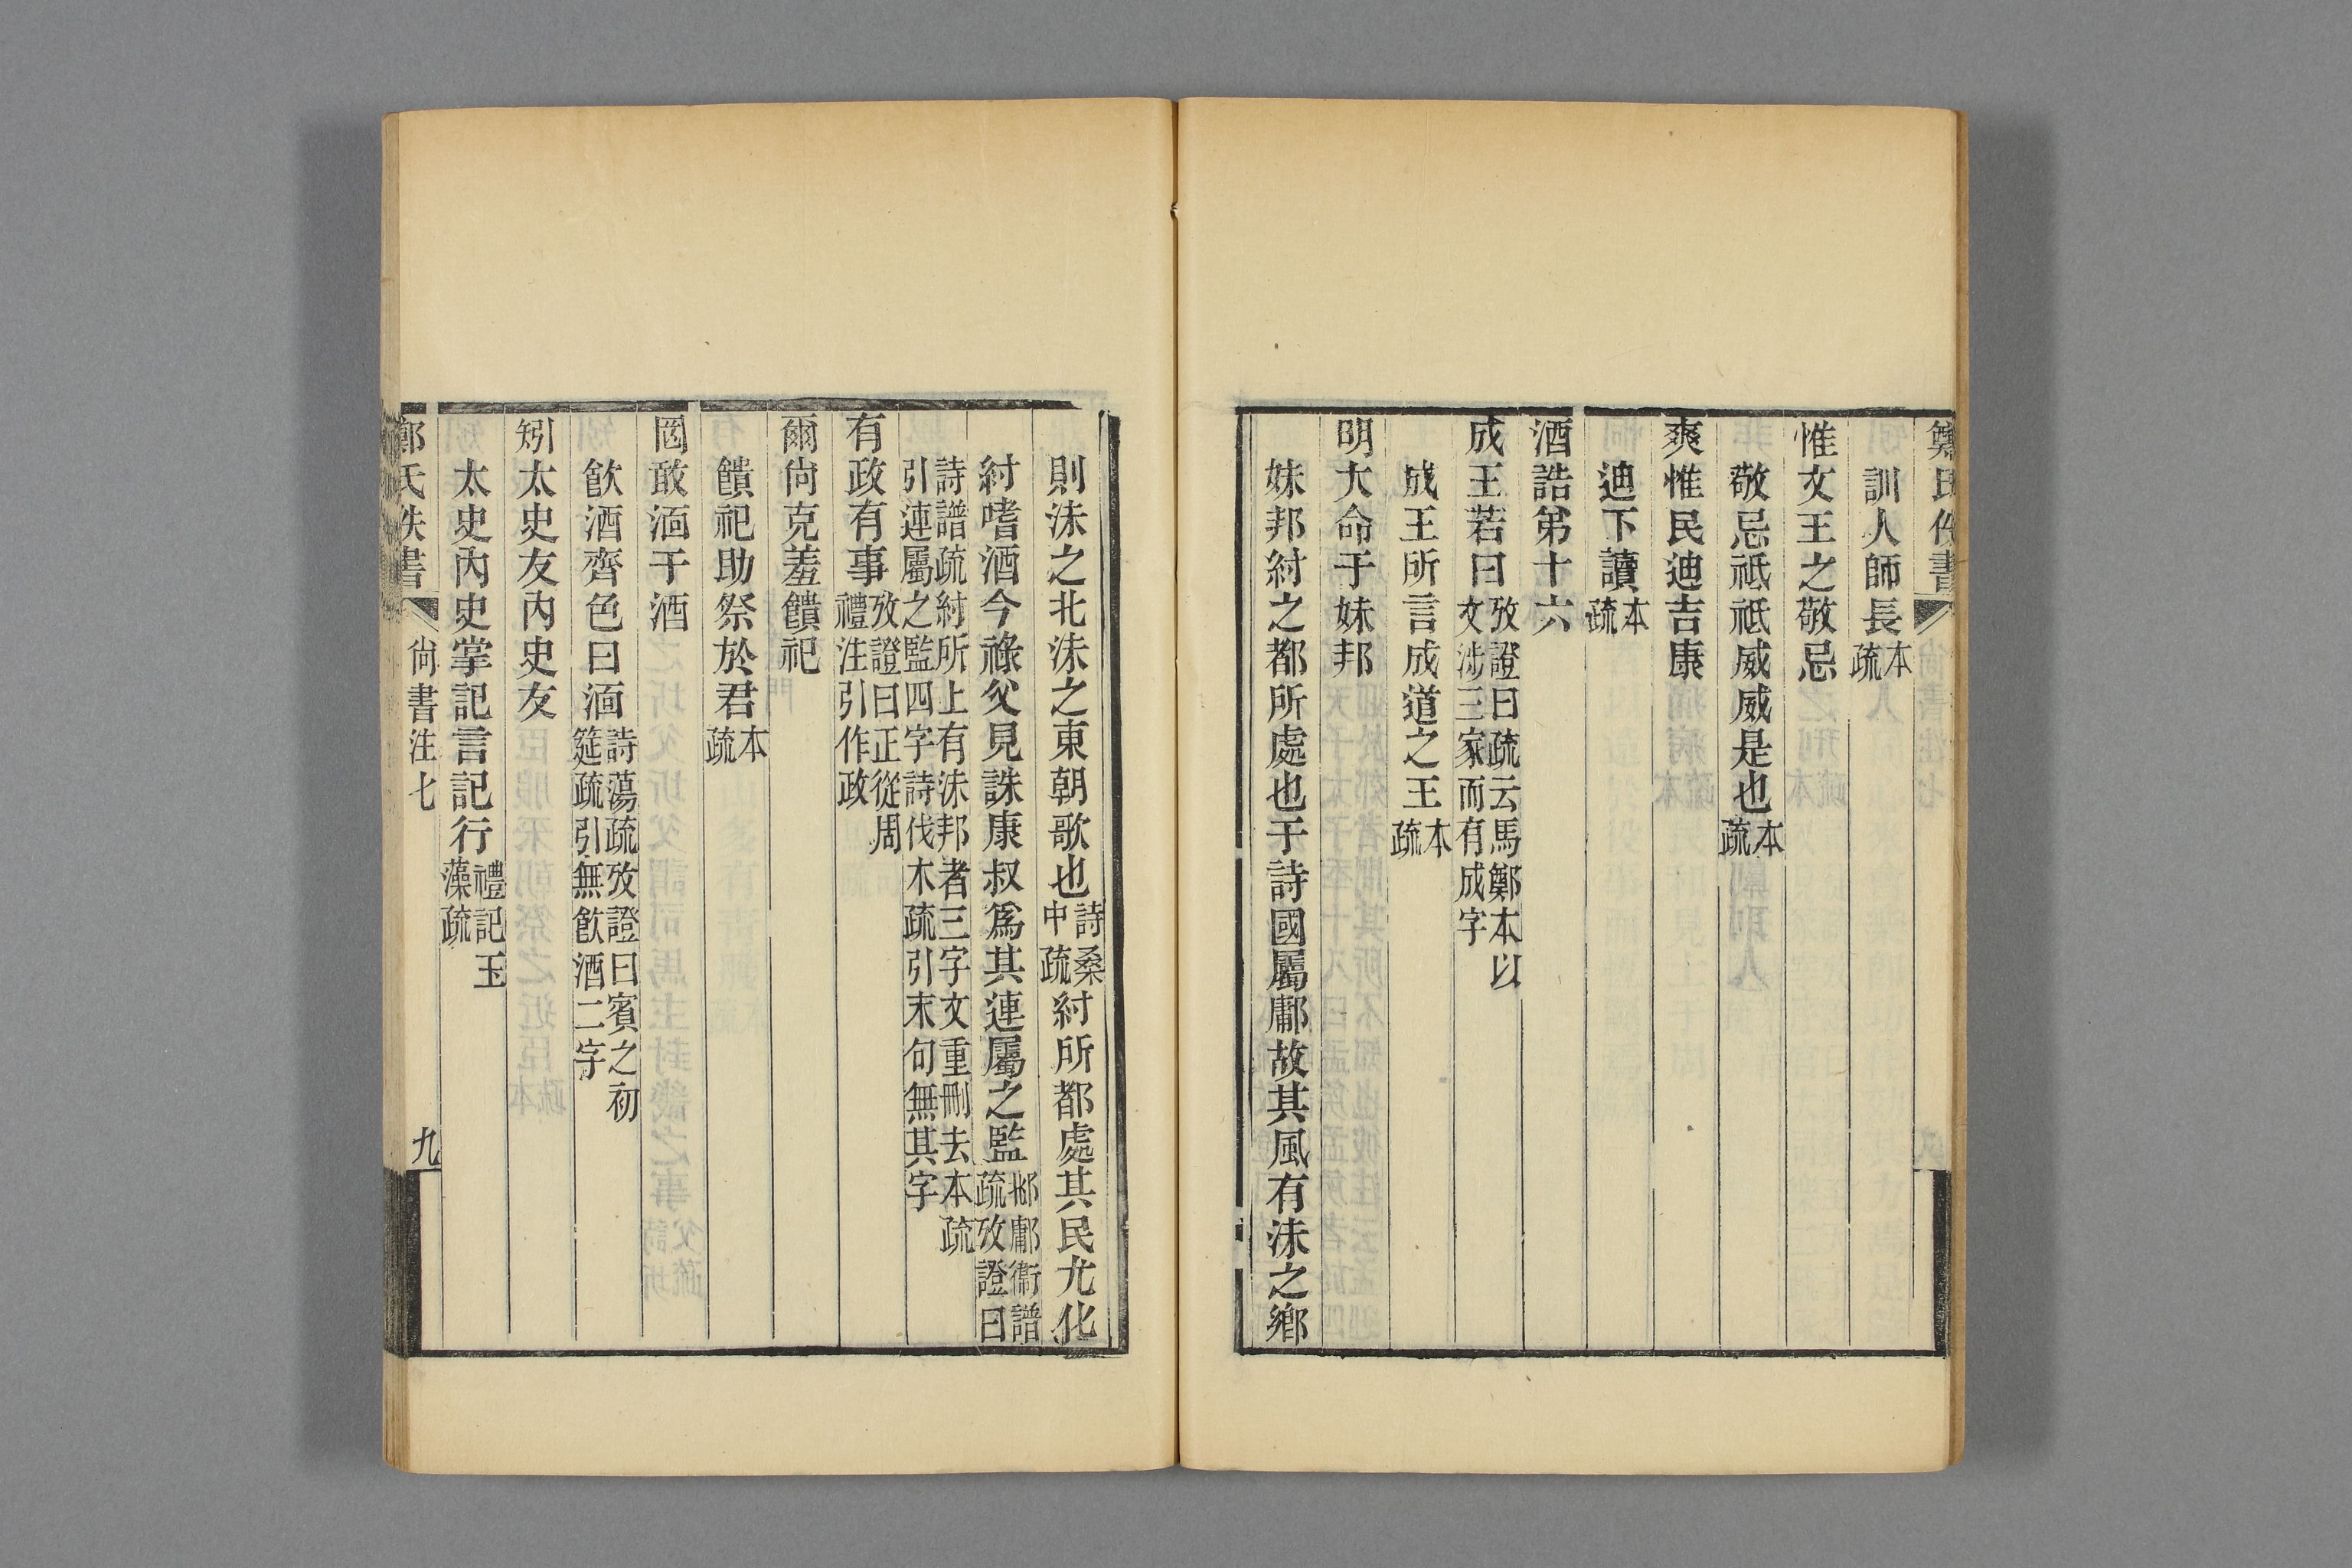 鄭氏佚書
訓人師長本疏
惟文王之敬忌
敬忌祗祗威威是也本疏
爽惟民迪吉康
迪下讀本疏
酒誥第十六
成王若曰攷證曰疏云馬鄭本以文涉三家而有成字
成王所言成道之王本疏
明大命于妹邦
妹邦紂之都所處也于詩國屬鄘故其風有沬之鄉
則沬之北沬之東朝歌也詩桑中疏紂所都處其民尤化
紂嗜酒今祿父見誅康叔爲其連屬之監邶鄘衞譜疏攷證曰
詩譜疏紂所上有沬邦者三字文重刪去本疏引連屬之監四字詩伐木疏引末句無其字
有政有事攷證曰正從周禮注引作政
爾尙克羞饋祀
饋祀助祭於君本疏
罔敢湎于酒
飮酒齊色曰湎詩蕩疏攷證曰賓之初筵疏引無飮酒二字
矧太史友內史友
太史內史掌記言記行禮記玉藻疏
鄭氏佚書 尙書注七 九